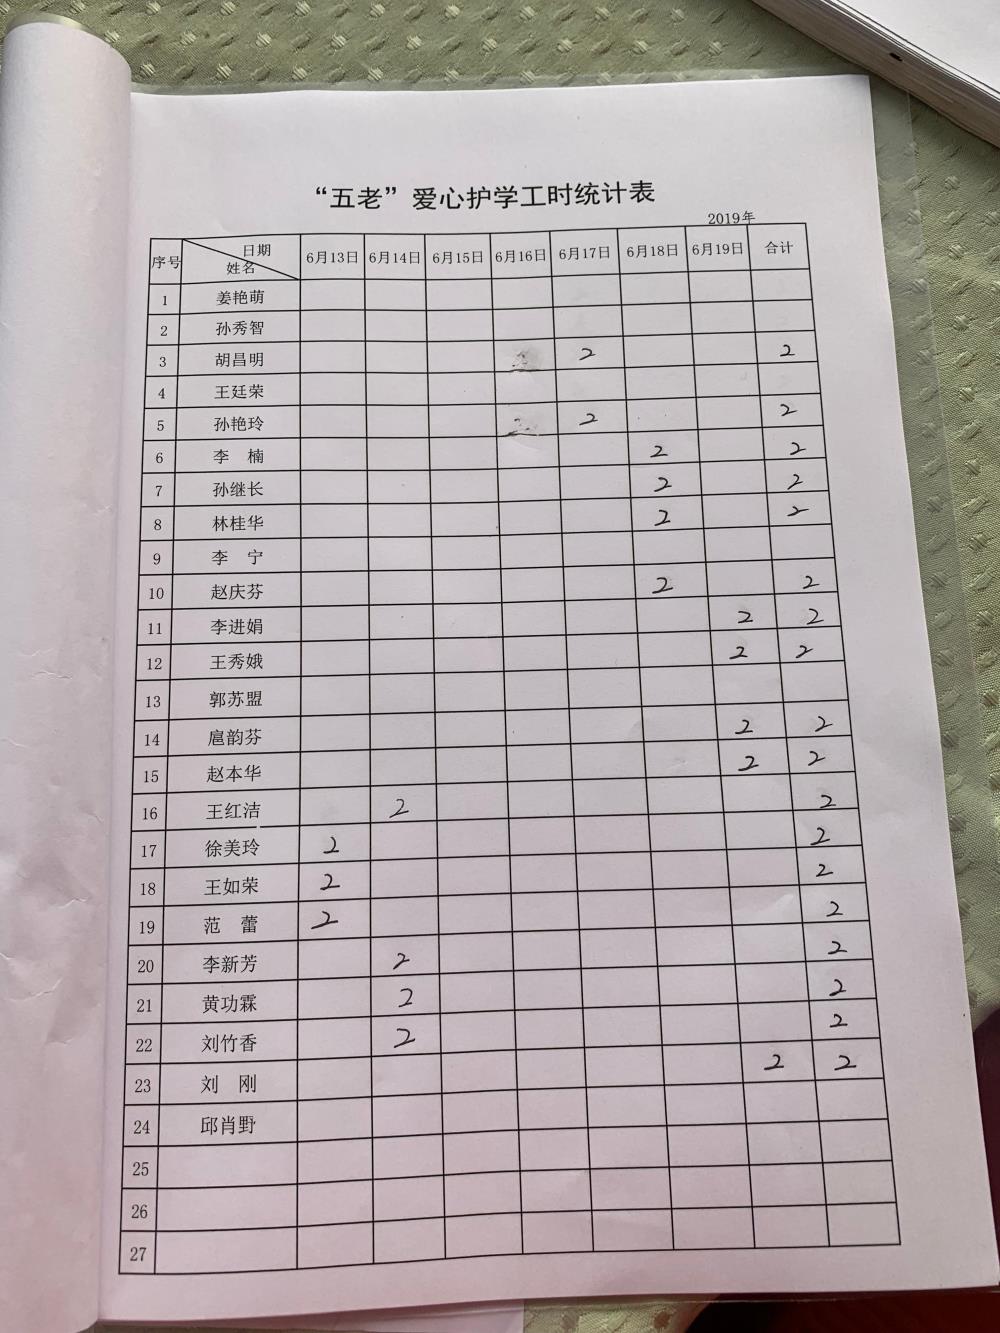 “五老”爱心护学工时统计表
2019年
序号 日期 姓名 6月13日 6月14日 6月15日 6月16日 6月17日 6月18日 6月19日 合计
1 姜艳萌
2 孙秀智
3 胡昌明 2 2
4 王廷荣
5 孙艳玲 2 2
6 李 楠 2 2
7 孙继长 2 2
8 林桂华 2 2
9 李 宁
10 赵庆芬 2 2
11 李进娟 2 2
12 王秀娥 2 2
13 郭苏盟
14 扈韵芬 2 2
15 赵本华 2 2
16 王红洁 2 2
17 徐美玲 2 2
18 王如荣 2 2
19 范 蕾 2 2
20 李新芳 2 2
21 黄功霖 2 2
22 刘竹香 2 2
23 刘 刚 2 2
24 邱肖野
25
26
27